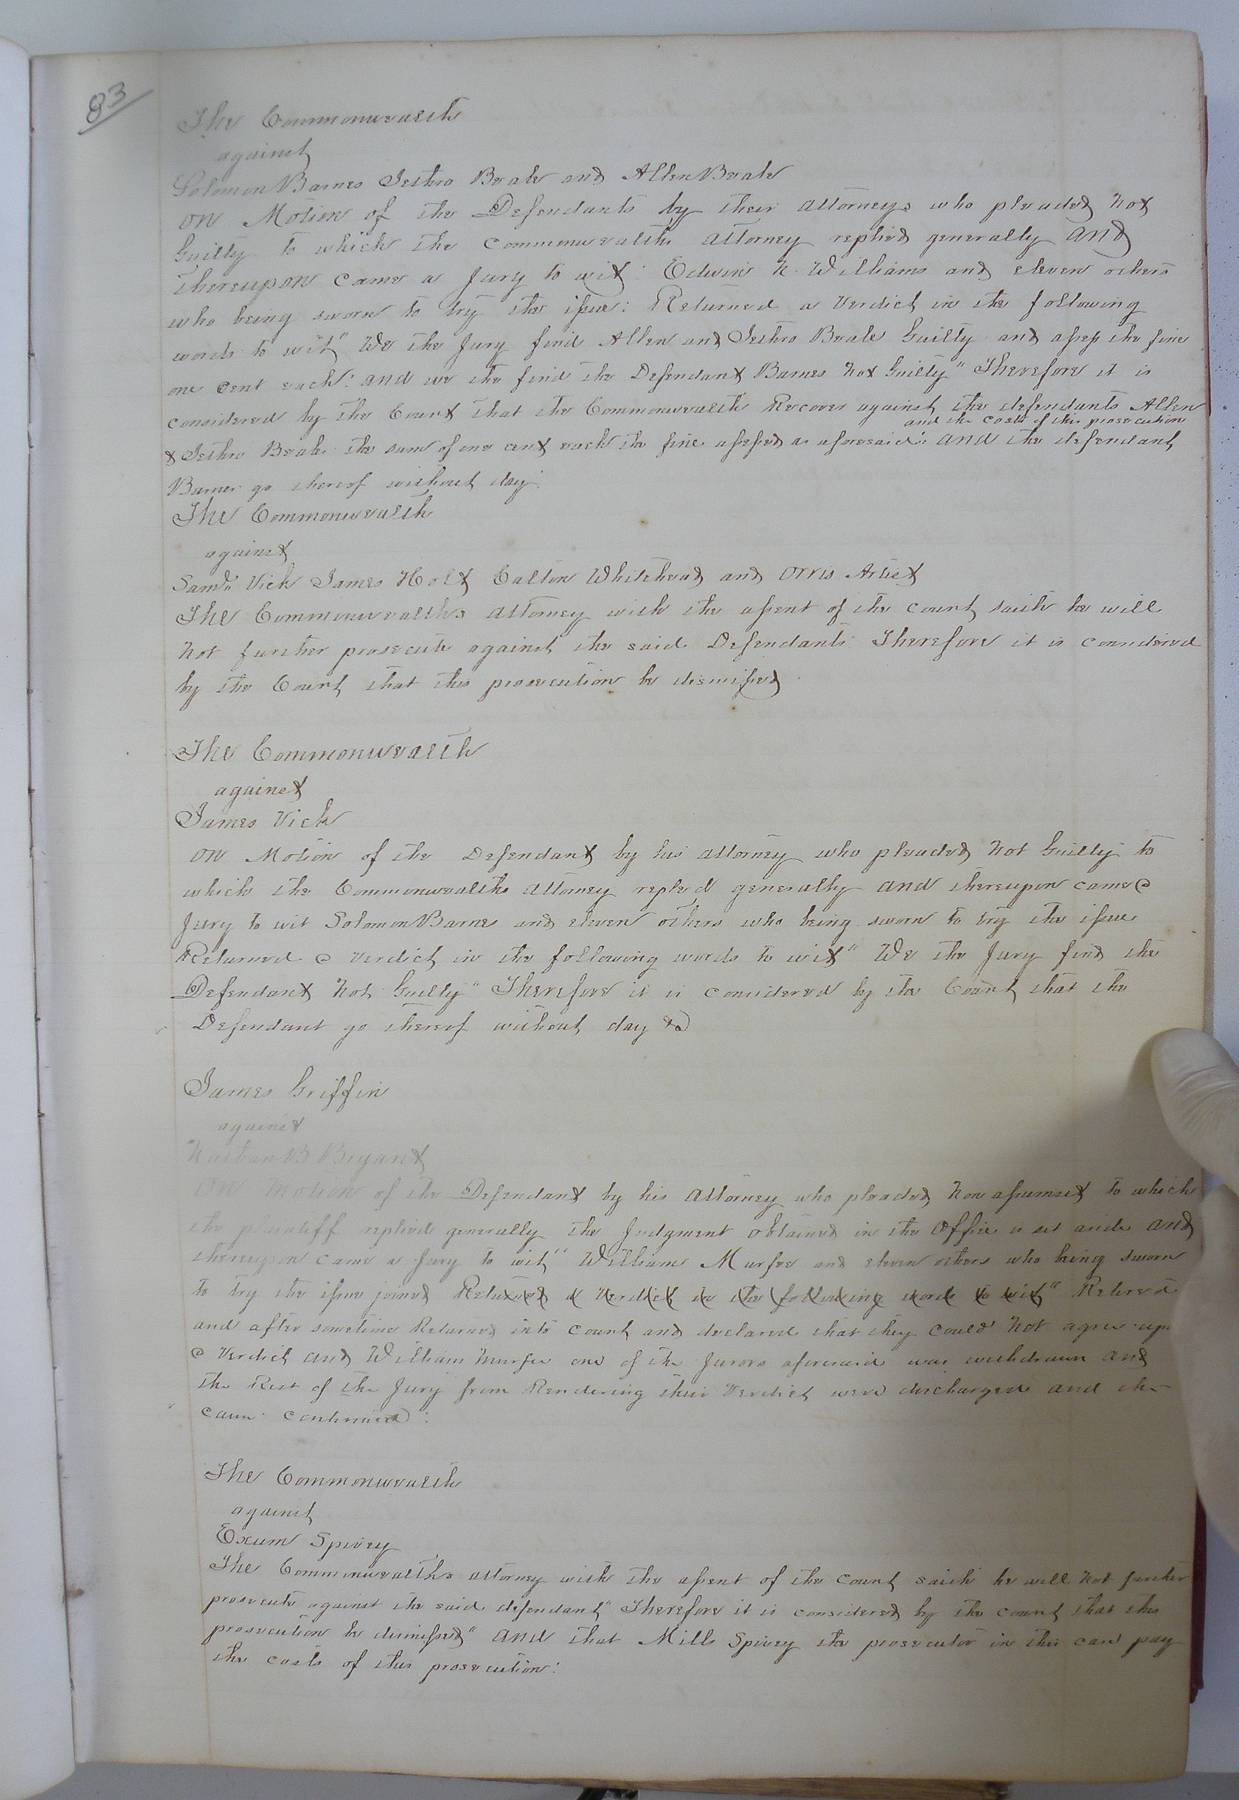 83
The Commonwealth
against
Solomon Barnes Jethro Beale and Allen Beale
On Motion of the Defendants by their attorneys who pleaded not
Guilty to which the commonwealths attorney replied generally and
thereupon came a Jury to wit: Edwin N. Williams and eleven others
who being sworn to try the issue: Returned a Verdict in the following
words to wit "We the Jury find Allen and Jethro Beale Guilty and assess the fine
one cent each: and we the find the Defendant Barnes Not Guilty" Therefore it is
considered by the Court that the Commonwealth Recover against the defendants Allen
and the costs of this prosecution
& Jethro Beale the sum of one cent each the fine assessed as aforesaid: and the defendant
Barnes go thereof without day:
The Commonwealth
against
Saml. Vick James Holt Calton Whitehead and Orris Artist
The Commonwealths attorney with the assent of the court saith he will
Not further prosecute against the said Defendants Therefore it is considered
by the Court that this prosecution be dismissed
The Commonwealth
against
James Vick
On Motion of the Defendant by his attorney who pleaded Not Guilty to
which the Commonwealths attorney replied generally and thereupon came a
Jury to wit Solomon Barnes and eleven others who being sworn to try the issue
Returned a verdict in the following words to wit "We the Jury find the
Defendant Not Guilty" Therefore it is considered by the Court that the
Defendant go thereof without day &c
James Griffin
against
Nathan B Bryant
On Motion of the Defendant by his Attorney who pleaded Non assumsit to which
the plaintiff replied generally the Judgment obtained in the Office is set aside and
thereupon came a Jury to wit" William Murfee and eleven others who being sworn
to try the issue joined Returned a Verdict in the following words to wit" Retired
and after sometime Returned into Court and declared that they could Not agree upo
a Verdict and William Murfee one of the Jurors aforesaid was withdrawn and
the Rest of the Jury from Rendering their Verdict were discharged and the
cause continued:
The Commonwealth
against
Exum Spivey
The Commonwealths attorney with the assent of the court saith he will Not further
prosecute against the said defendant" Therefore it is considered by the court that this
prosecution be dismissed" and that Mills Spivey the prosecutor in this case pay
the costs of this prosecution: